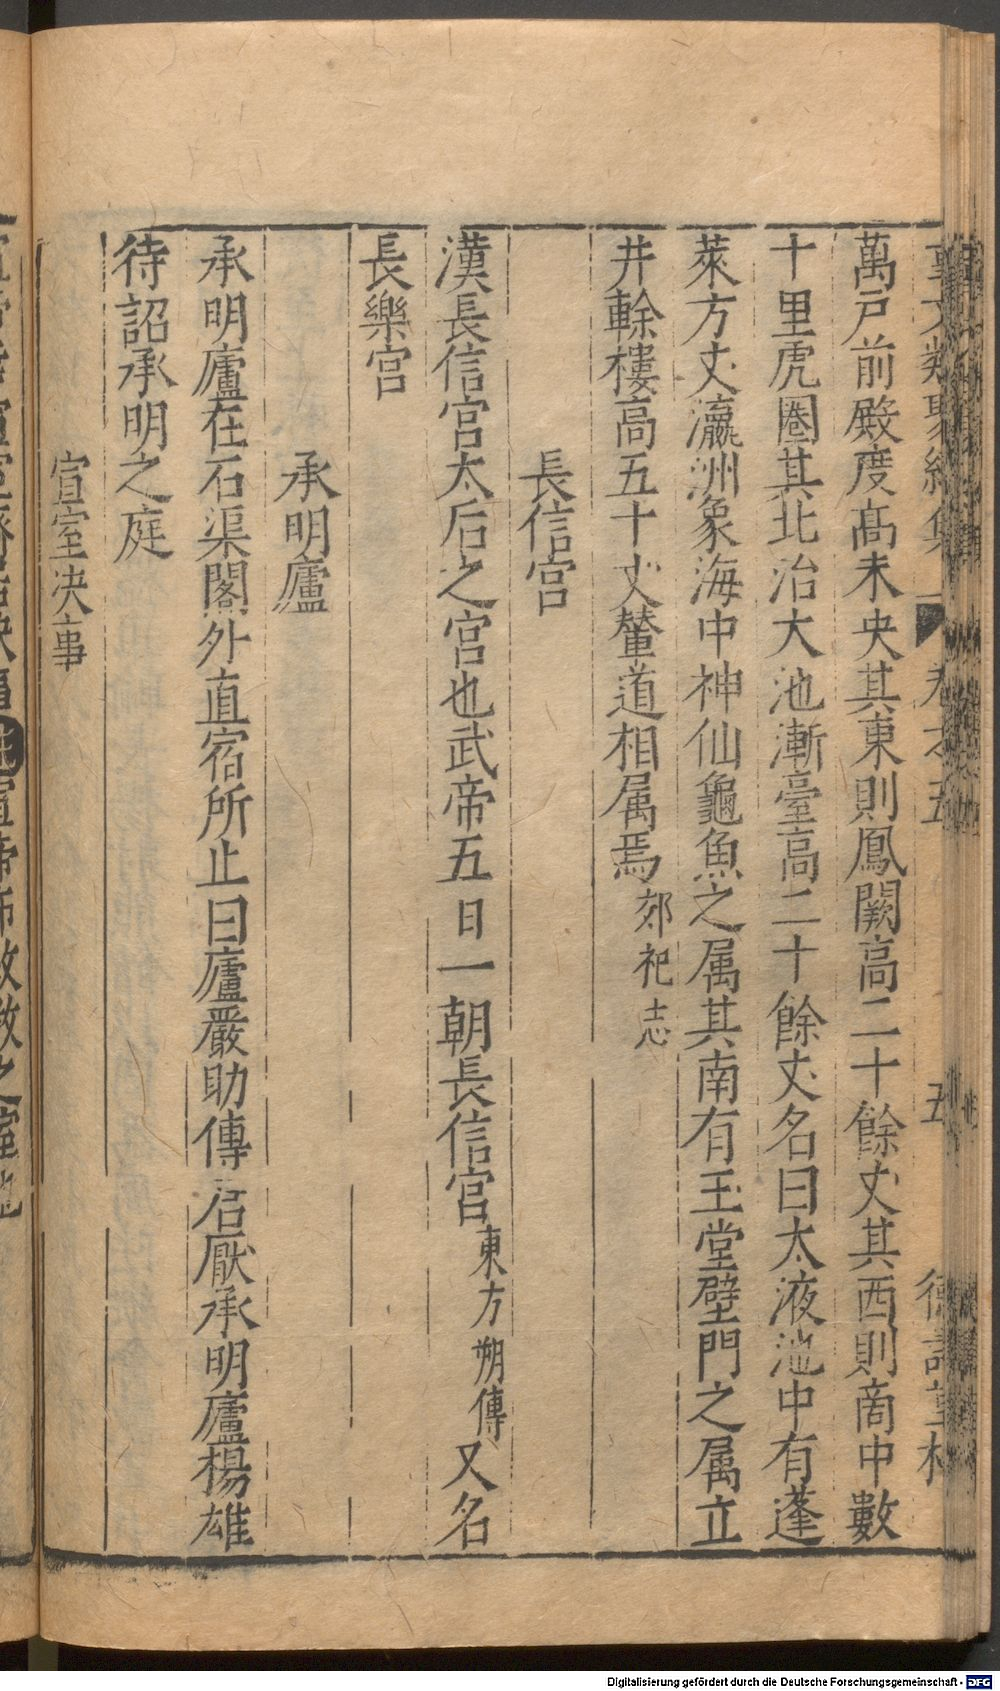 萬戸前殿度髙未央其東則鳳闕高二十餘丈其西則啇中數
十里虎圈其北治大池漸臺高二十餘丈名曰太液池中有蓬
萊方丈瀛洲象海中神仙龜魚之属其南有玉堂壁門之属立
井榦樓高五十丈輦道相属焉郊祀志
長信宫
漢長信宫太后之宫也武帝五日一朝長信宫東方朔傳又名
長樂宫
承明廬
承明廬在石渠閣外直宿所止曰廬嚴助傳君厭承明廬楊雄
待詔承明之庭
宣室决事
Digitalisierung gefördert durch die Deutsche Forschungsgemeinschaft - DFG